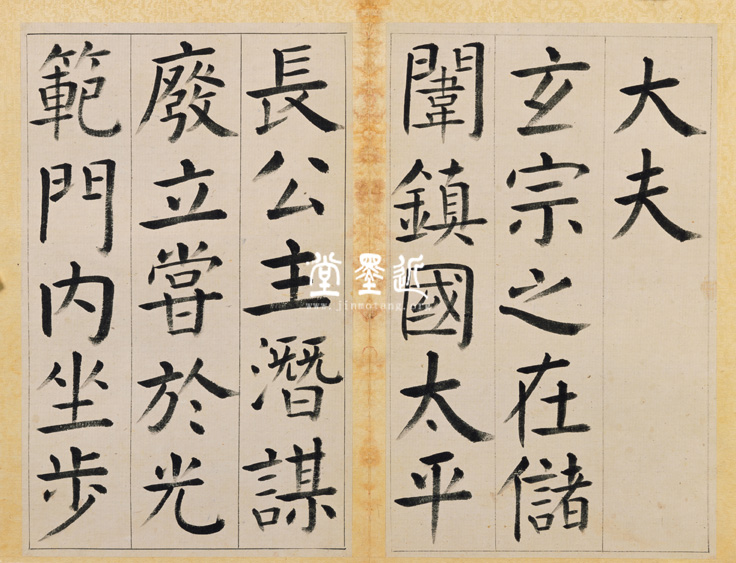 大夫
玄宗之在儲
闈鎮國太平
長公主潛謀
廢立嘗於光
範門內坐步
近墨堂
www.jinmotang.org